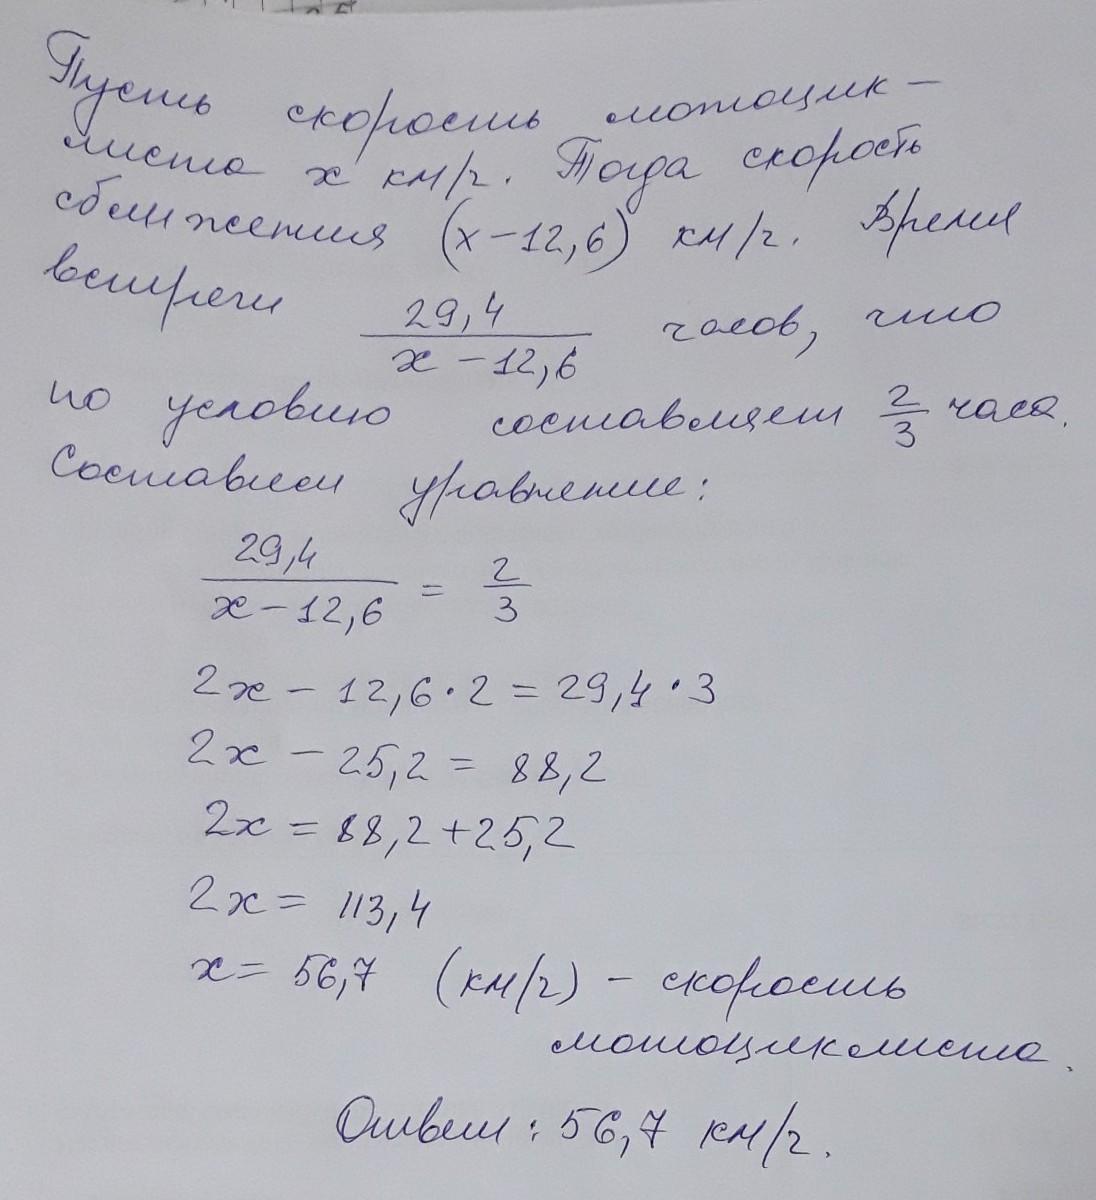 Пусть скорость мотоцик-
листа x км/ч. Тогда скорость
сближения (x-12,6) км/ч. Время
встречи 29,4/(x-12,6) часов, что
по условию составляет 2/3 часа.
Составлем уравнение:
29,4/(x-12,6) = 2/3
2x - 12,6·2 = 29,4·3
2x - 25,2 = 88,2
2x = 88,2+25,2
2x = 113,4
x = 56,7 (км/ч) - скорость
мотоциклиста.
Ответ: 56,7 км/ч.